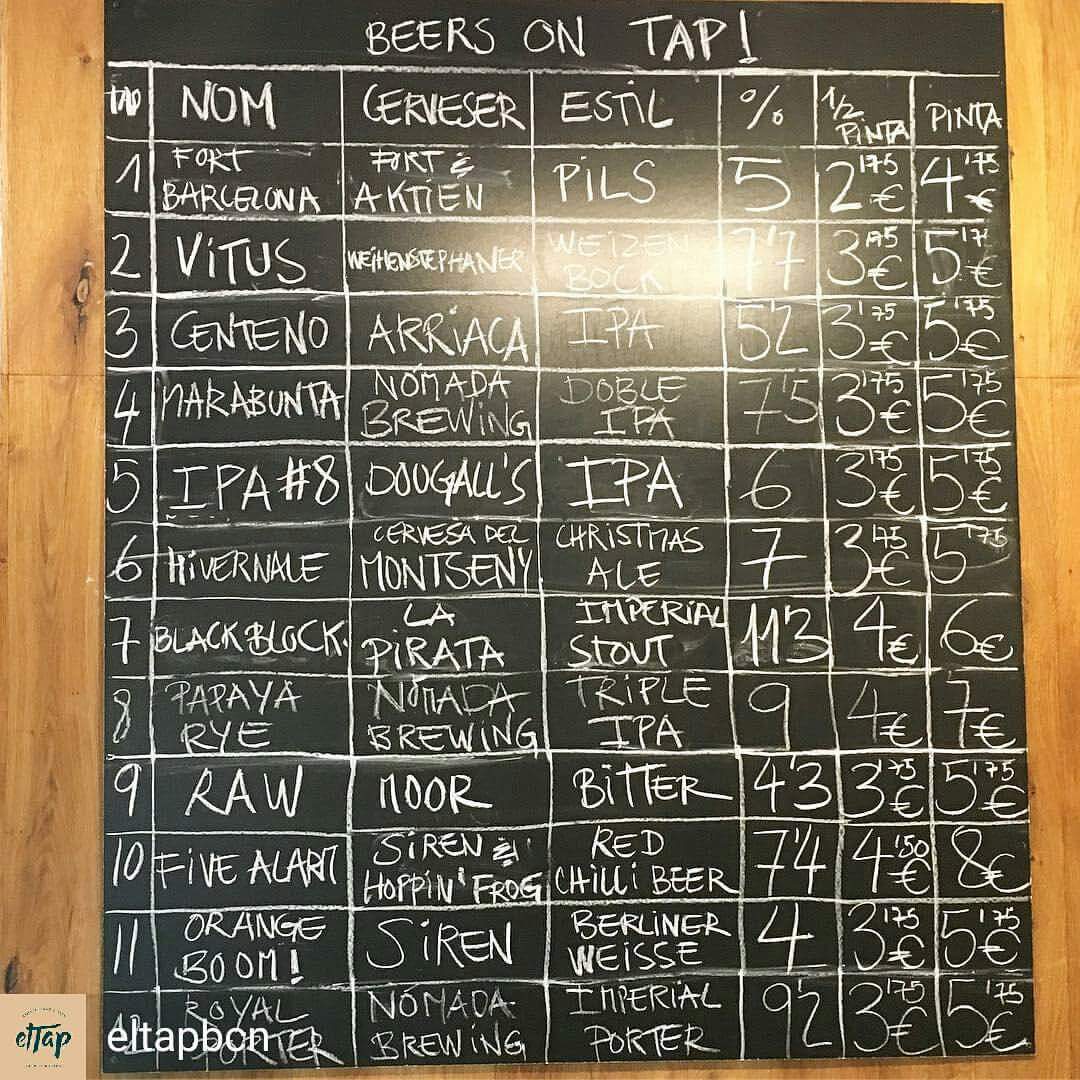 BEERS ON TAP!
TAP NOM CERVESER ESTIL % 1/2 PINTA PINTA
1 FORT BARCELONA FORT & AKTIEN PILS 5 2'75€ 4'75€
2 VITUS WEIHENSTEPHANER WEIZEN BOCK 7'7 3'75€ 5'75€
3 CENTENO ARRIACA IPA 5'2 3'75€ 5'75€
4 MARABUNTA NÓMADA BREWING DOBLE IPA 7'5 3'75€ 5'75€
5 IPA #8 DOUGALL'S IPA 6 3'75€ 5'75€
6 HIVERNALE CERVESA DEL MONTSENY CHRISTMAS ALE 7 3'75€ 5'75
7 BLACK BLOCK. LA PIRATA IMPERIAL STOUT 11'3 4€ 6€
8 PAPAYA RYE NÓMADA BREWING TRIPLE IPA 9 4€ 7€
9 RAW MOOR BITTER 4'3 3'75€ 5'75€
10 FIVE ALARM SIREN & HOPPIN' FROG RED CHILLI BEER 7'4 4'50€ 8€
11 ORANGE BOOM! SIREN BERLINER WEISSE 4 3'75€ 5'75€
12 ROYAL PORTER NÓMADA BREWING IMPERIAL PORTER 9'2 3'75€ 5'75€
elTap
eltapbcn